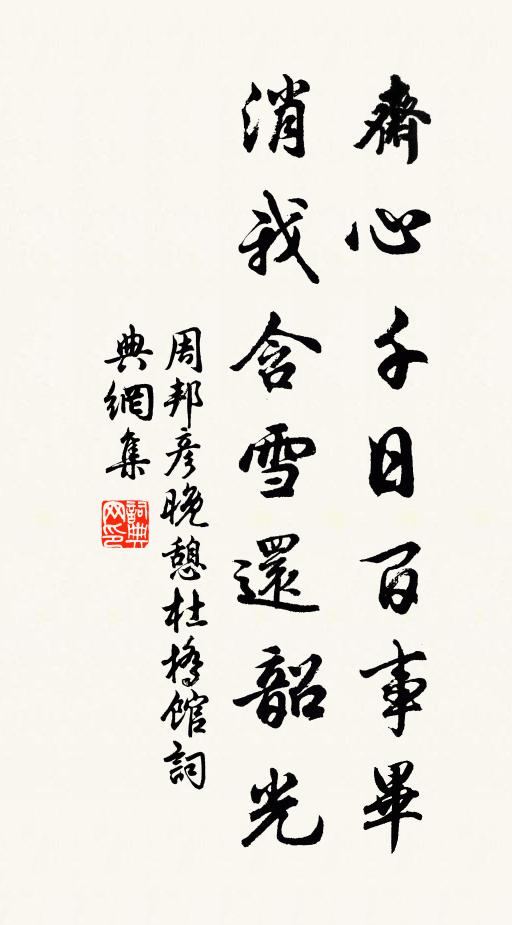 齋心千日百事畢
消我含雪還韶光
周邦彥晚憩杜橋館詞
典網集
詞典網印